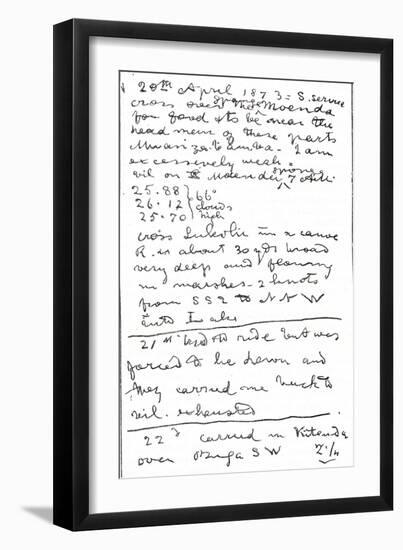 20th April 1873 = S. service
cross over the sponge Moenda
for food & to be near the
head man of these parts
Moanzambamba. I am
excessively weak
vil on Moenda sponge 7 AM
25.88 } 66°
26.12 } clouds
25.70 } high
cross Lukulu in a canoe
R. is about 30 yds broad
very deep and flowing
in marshes - 2 knots
from SSE to NNW
into Lake
21st tried to ride but was
forced to lie down and
they carried me back to
vil. exhausted
22d carried in Kitanda
over Buga SW 2 1/4